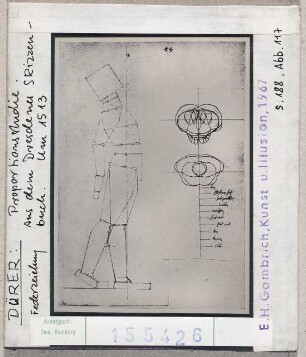 DÜRER: Proportionsstudie.
Aus dem Dresdener Skizzen-
buch. Um 1513
Federzeichnung
E.H. Gombrich, Kunst u. Illusion, 1967
S. 188, Abb. 117
Kunstgesch.
Sem. Hamburg
155426